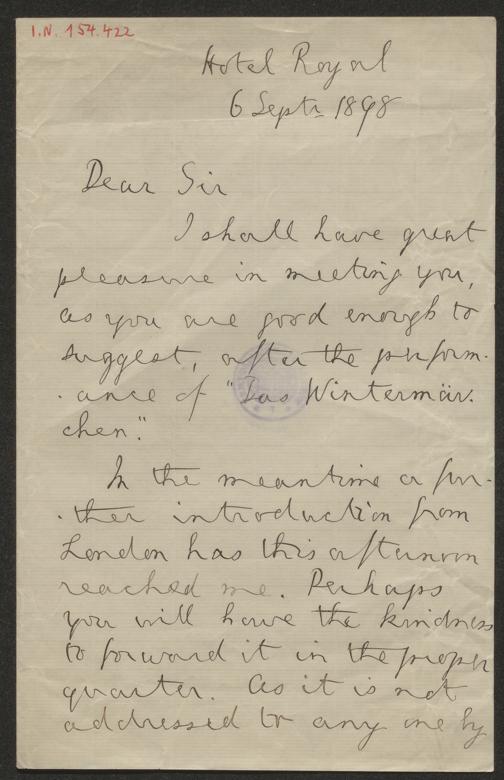 I.N. 154.422
Hotel Royal
6 Septr 1898
Dear Sir
I shall have great
pleasure in meeting you,
as you are good enough to
suggest, after the perform-
-ance of "Das Wintermär-
chen."
In the meantime a fur-
-ther introduction from
London has this afternoon
reached me. Perhaps
you will have the kindness
to forward it in the proper
quarter. As it is not
addressed to any one by